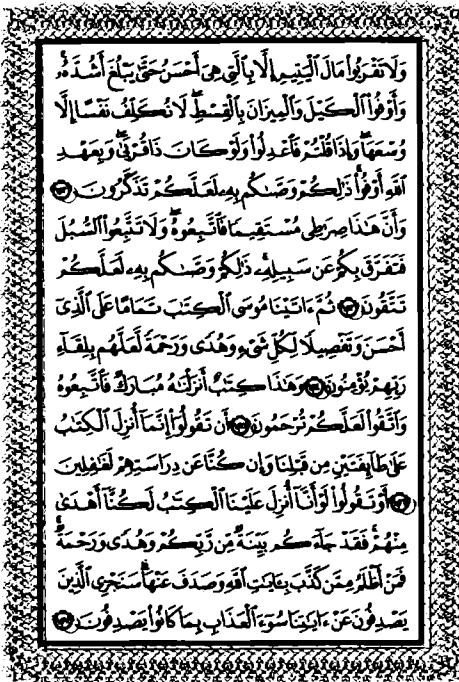 وَلَا تَقْرَبُوا۟ مَالَ ٱلْيَتِيمِ إِلَّا بِٱلَّتِى هِىَ أَحْسَنُ حَتَّىٰ يَبْلُغَ أَشُدَّهُۥ
وَأَوْفُوا۟ ٱلْكَيْلَ وَٱلْمِيزَانَ بِٱلْقِسْطِ لَا نُكَلِّفُ نَفْسًا إِلَّا
وُسْعَهَا وَإِذَا قُلْتُمْ فَٱعْدِلُوا۟ وَلَوْ كَانَ ذَا قُرْبَىٰ وَبِعَهْدِ
ٱللَّهِ أَوْفُوا۟ ذَٰلِكُمْ وَصَّىٰكُم بِهِۦ لَعَلَّكُمْ تَذَكَّرُونَ ١٥٢
وَأَنَّ هَٰذَا صِرَٰطِى مُسْتَقِيمًا فَٱتَّبِعُوهُ وَلَا تَتَّبِعُوا۟ ٱلسُّبُلَ
فَتَفَرَّقَ بِكُمْ عَن سَبِيلِهِۦ ذَٰلِكُمْ وَصَّىٰكُم بِهِۦ لَعَلَّكُمْ
تَتَّقُونَ ١٥٣ ثُمَّ ءَاتَيْنَا مُوسَى ٱلْكِتَٰبَ تَمَامًا عَلَى ٱلَّذِىٓ
أَحْسَنَ وَتَفْصِيلًا لِّكُلِّ شَىْءٍ وَهُدًى وَرَحْمَةً لَّعَلَّهُم بِلِقَآءِ
رَبِّهِمْ يُؤْمِنُونَ ١٥٤ وَهَٰذَا كِتَٰبٌ أَنزَلْنَٰهُ مُبَارَكٌ فَٱتَّبِعُوهُ
وَٱتَّقُوا۟ لَعَلَّكُمْ تُرْحَمُونَ ١٥٥ أَن تَقُولُوٓا۟ إِنَّمَآ أُنزِلَ ٱلْكِتَٰبُ
عَلَىٰ طَآئِفَتَيْنِ مِن قَبْلِنَا وَإِن كُنَّا عَن دِرَاسَتِهِمْ لَغَٰفِلِينَ
١٥٦ أَوْ تَقُولُوا۟ لَوْ أَنَّآ أُنزِلَ عَلَيْنَا ٱلْكِتَٰبُ لَكُنَّآ أَهْدَىٰ
مِنْهُمْ فَقَدْ جَآءَكُم بَيِّنَةٌ مِّن رَّبِّكُمْ وَهُدًى وَرَحْمَةٌ
فَمَنْ أَظْلَمُ مِمَّن كَذَّبَ بِـَٔايَٰتِ ٱللَّهِ وَصَدَفَ عَنْهَا سَنَجْزِى ٱلَّذِينَ
يَصْدِفُونَ عَنْ ءَايَٰتِنَا سُوٓءَ ٱلْعَذَابِ بِمَا كَانُوا۟ يَصْدِفُونَ ١٥٧